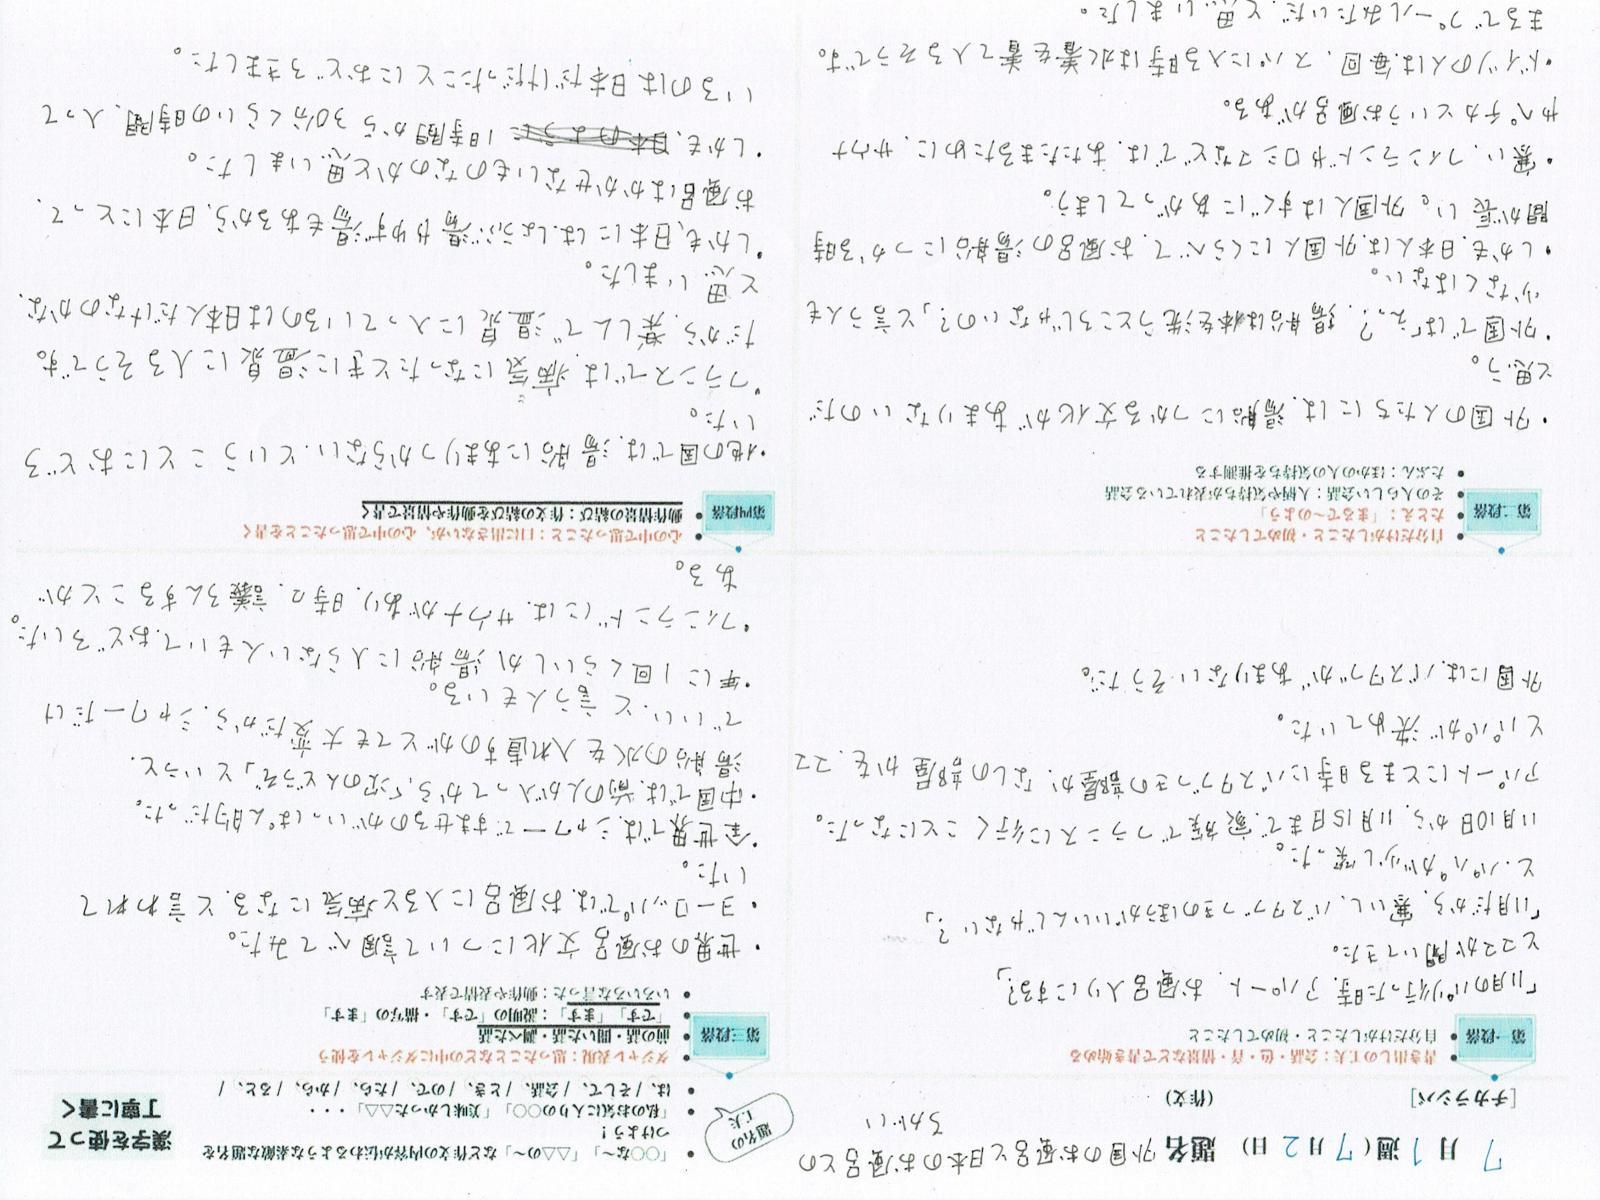 7月1週(7月2日) 題名 外国のお風呂と日本のお風呂との
ちがい
[チカラシバ]
(作文)
「○○な～」「△△の～」など作文の内容が伝わるような素敵な題名を
つけよう！
「私のお気に入りの○○」「美味しかった△△」・・・
は、/ そして、/ 会話、/ とき、/ ので、/ たら、/ から、/ ると、/
題名の
工夫
漢字を使って
丁寧に書く
第一段落
書き出しの工夫：会話・色・音・情景などで書き始める
自分だけがしたこと・初めてしたこと
「11月のパリ行った時、アパート、お風呂入りにする？」
とココが聞いてきた。
「11月だから、寒いし、バスタブつきのほうがいいんじゃない？」
と、パパが少し笑った。
11月10日から、11月15日まで、家族でフランスに行くことになった。
アパートにとまる時にバスタブつきの部屋か、なしの部屋かを、ココ
とパパが決めていた。
外国には、バスタブがあまりないそうだ。
第二段落
自分だけがしたこと・初めてしたこと
たとえ：「まるで～のよう」
その人らしい会話：人柄や気持ちが表れている会話
たぶん：ほかの人の気持ちを推測する
・外国の人たちには、湯船につかる文化があまりないのだ
と思う。
・外国では「えっ？、湯船は体を洗うところじゃないの？」と、言う人も
少なくはない。
・しかも、日本人は、外国人にくらべて、お風呂の湯船につかる時
間が長い。外国人はすぐにあがってしまう。
・寒い、フィンランドやロシアなどでは、あたたまるために、サウナ
やペチカというお風呂がある。
・ドイツの人は、毎回、スパに入る時は水着を着て入るそうです。
まるでプールみたいだ、と思いました。
第三段落
ダジャレ表現：思ったことなどの中にダジャレを使う
前の話・聞いた話・調べた話
「です」「ます」：説明の「です」・描写の「ます」
いろいろな言った：動作や表情で表す
・世界のお風呂文化について調べてみた。
・ヨーロッパでは、お風呂に入ると病気になると言われて
いた。
・全世界では、シャワーですませるのがいっぱん的だった。
・中国では、前の人が入ってから、「次の人どうぞ」というと、
湯船の水を入れ直すのがとても大変だから、シャワーだけ
でいい、と、言う人もいる。
・年に1回くらいしか湯船に入らない人もいて、おどろいた。
・フィンランドには、サウナがあり、時々、議ろんすることが
ある。
第四段落
心の中で思ったこと：口に出さないが、心の中で思ったことを書く
動作情景の結び：作文の結びを動作や情景で書く
・他の国では、湯船にあまりつからない、ということにおどろ
いた。
・フランスでは、病気になったときに温泉に入るそうです。
だから、楽しんで温泉に入っているのは日本人だけなのかな、
と思いました。
・しかも、日本には、しょうぶ湯やゆず湯もあるから、日本にとって、
お風呂はかかせないものなのかと思いました。
・しかも、1時間から30分くらいの時間、入って
いるのは日本だけだったことにおどろきました。